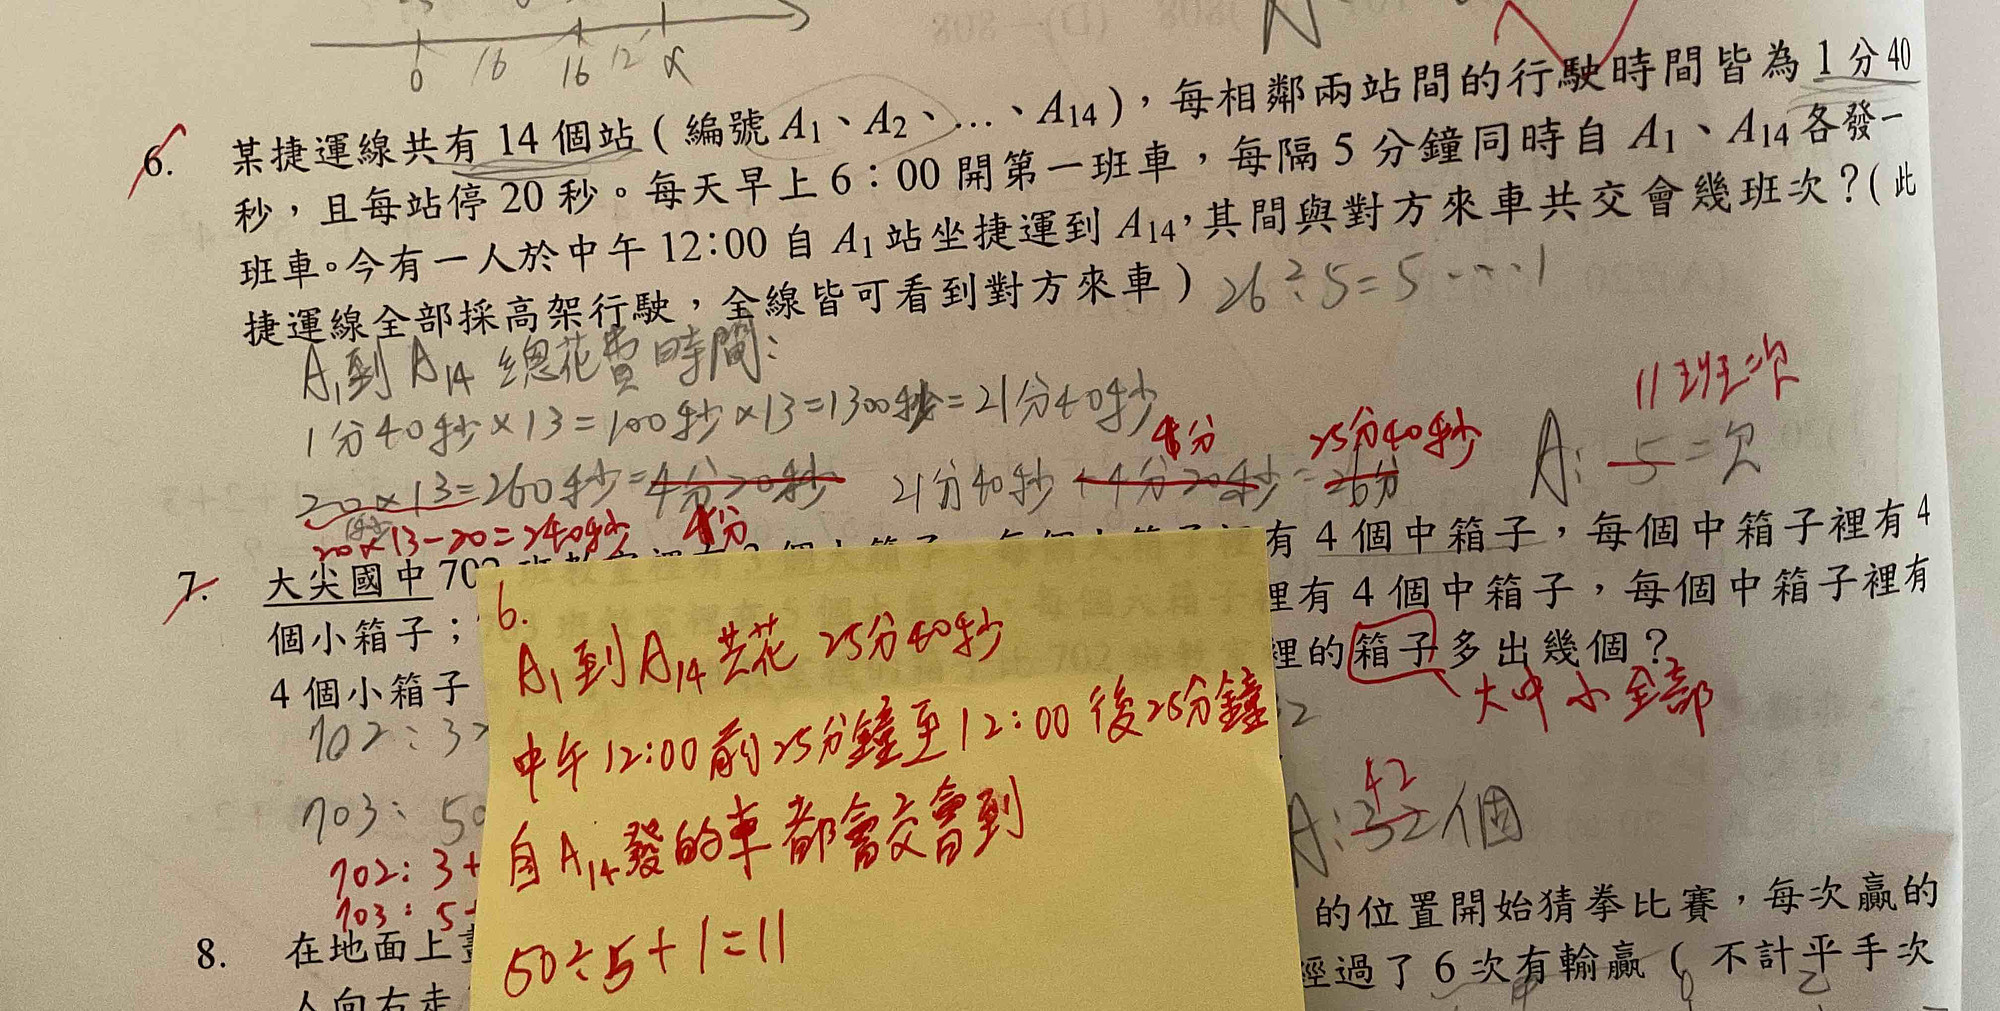 0 16 16 12 α
6. 某捷運線共有 14 個站 ( 編號 A₁、A₂、…、A₁₄ ),每相鄰兩站間的行駛時間皆為 1 分 40
秒,且每站停 20 秒。每天早上 6:00 開第一班車,每隔 5 分鐘同時自 A₁、A₁₄ 各發一
班車。今有一人於中午 12:00 自 A₁ 站坐捷運到 A₁₄,其間與對方來車共交會幾班次?( 此
捷運線全部採高架行駛,全線皆可看到對方來車 )
26÷5=5…1
A₁到A₁₄ 總花費時間:
1分40秒×13=100秒×13=1300秒=21分40秒
11班次
20×13=260秒=4分20秒 21分40秒+4分20秒=26分
4分 25分40秒
A: 5次
20×13-20=240秒 4分
7. 大尖國中 702 有 4 個中箱子,每個中箱子裡有 4
個小箱子; 裡有 4 個中箱子,每個中箱子裡有
4 個小箱子 裡的箱子多出幾個?
大中小全部
702:3
703:50
42
A:32個
702:3+
703:5+
6.
A₁到A₁₄共花 25分40秒
中午12:00前25分鐘至12:00後25分鐘
自A₁₄發的車都會交會到
50÷5+1=11
8. 在地面上 的位置開始猜拳比賽,每次贏的
人向右走 經過了 6 次有輸贏 ( 不計平手次